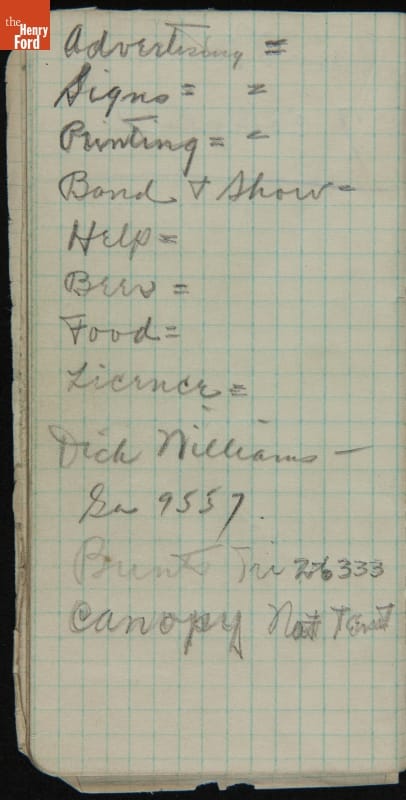 the
Henry
Ford
Advertising =
Signs = =
Printing = =
Band & Show =
Help =
Beer =
Food =
Licence =
Dick Williams -
Ga 9557.
Tri 26333
Canopy Tent